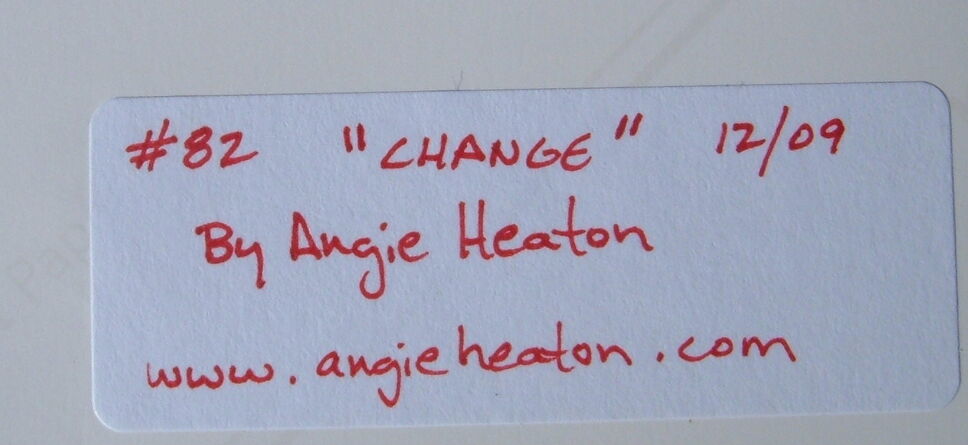 #82 "CHANGE" 12/09
By Angie Heaton
www.angieheaton.com